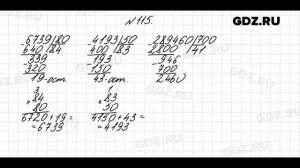 GDZ.RU
№115.
6739|80 4193|50 289460|700
640 |84 400 |83 2800 |41
339 -193 -946
320 150 700
19-ост. 43-ост. 246
3 1
×84 ×83
80 50
6720+19= 4150+43=
=6739 =4193
GDZ.RU